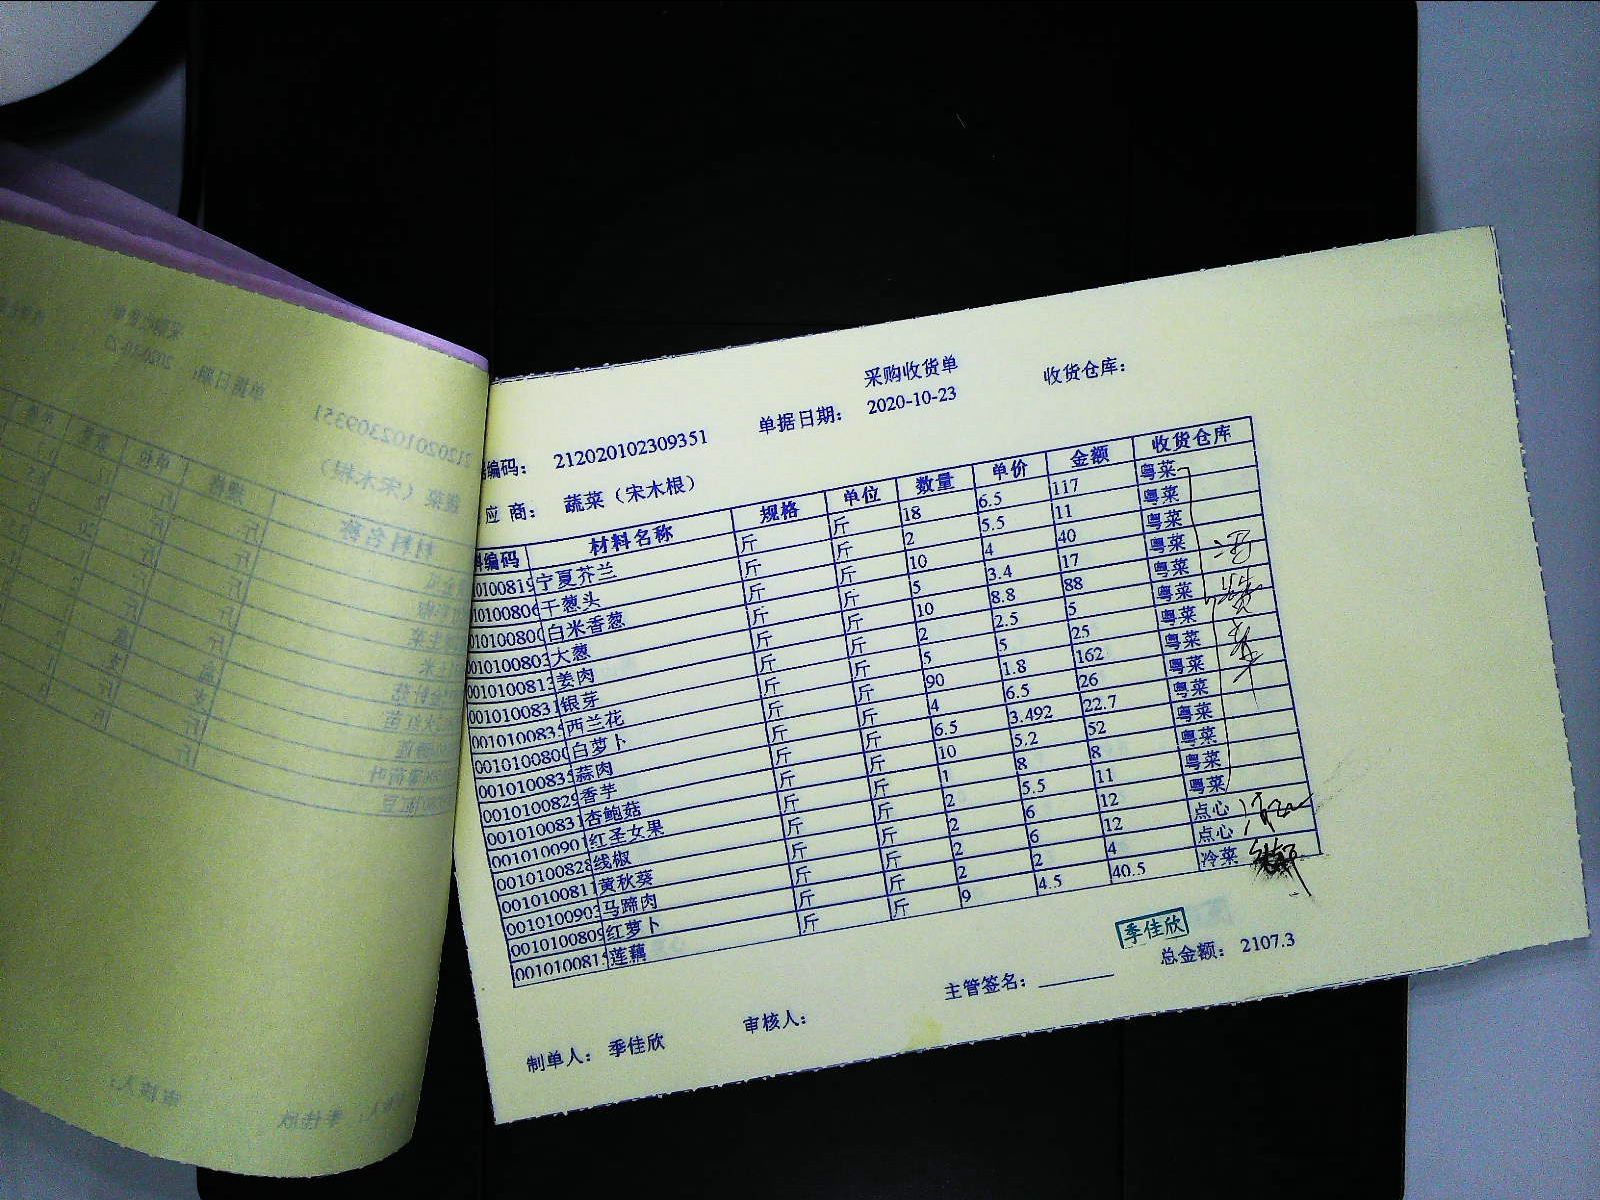 采购收货单
编码： 212020102309351 单据日期： 2020-10-23 收货仓库：
应 商： 蔬菜（宋木根）
料编码 材料名称 规格 单位 数量 单价 金额 收货仓库
01010081 宁夏芥兰 斤 斤 18 6.5 117 粤菜
01010080 干葱头 斤 斤 2 5.5 11 粤菜
01010080 白米香葱 斤 斤 10 4 40 粤菜
010100803 大葱 斤 斤 5 3.4 17 粤菜
0010100813 姜肉 斤 斤 10 8.8 88 粤菜
0010100831 银芽 斤 斤 2 2.5 5 粤菜
001010083 西兰花 斤 斤 5 5 25 粤菜
001010080 白萝卜 斤 斤 90 1.8 162 粤菜
001010083 蒜肉 斤 斤 4 6.5 26 粤菜
001010082 香芋 斤 斤 6.5 3.492 22.7 粤菜
001010083 杏鲍菇 斤 斤 10 5.2 52 粤菜
001010090 红圣女果 斤 斤 1 8 8 粤菜
001010082 线椒 斤 斤 2 5.5 11 粤菜
001010081 黄秋葵 斤 斤 2 6 12 粤菜
001010090 马蹄肉 斤 斤 2 6 12 点心
001010080 红萝卜 斤 斤 2 2 4 点心
001010081 莲藕 斤 斤 9 4.5 40.5 冷菜
季佳欣
主管签名： 总金额： 2107.3
制单人： 季佳欣 审核人：